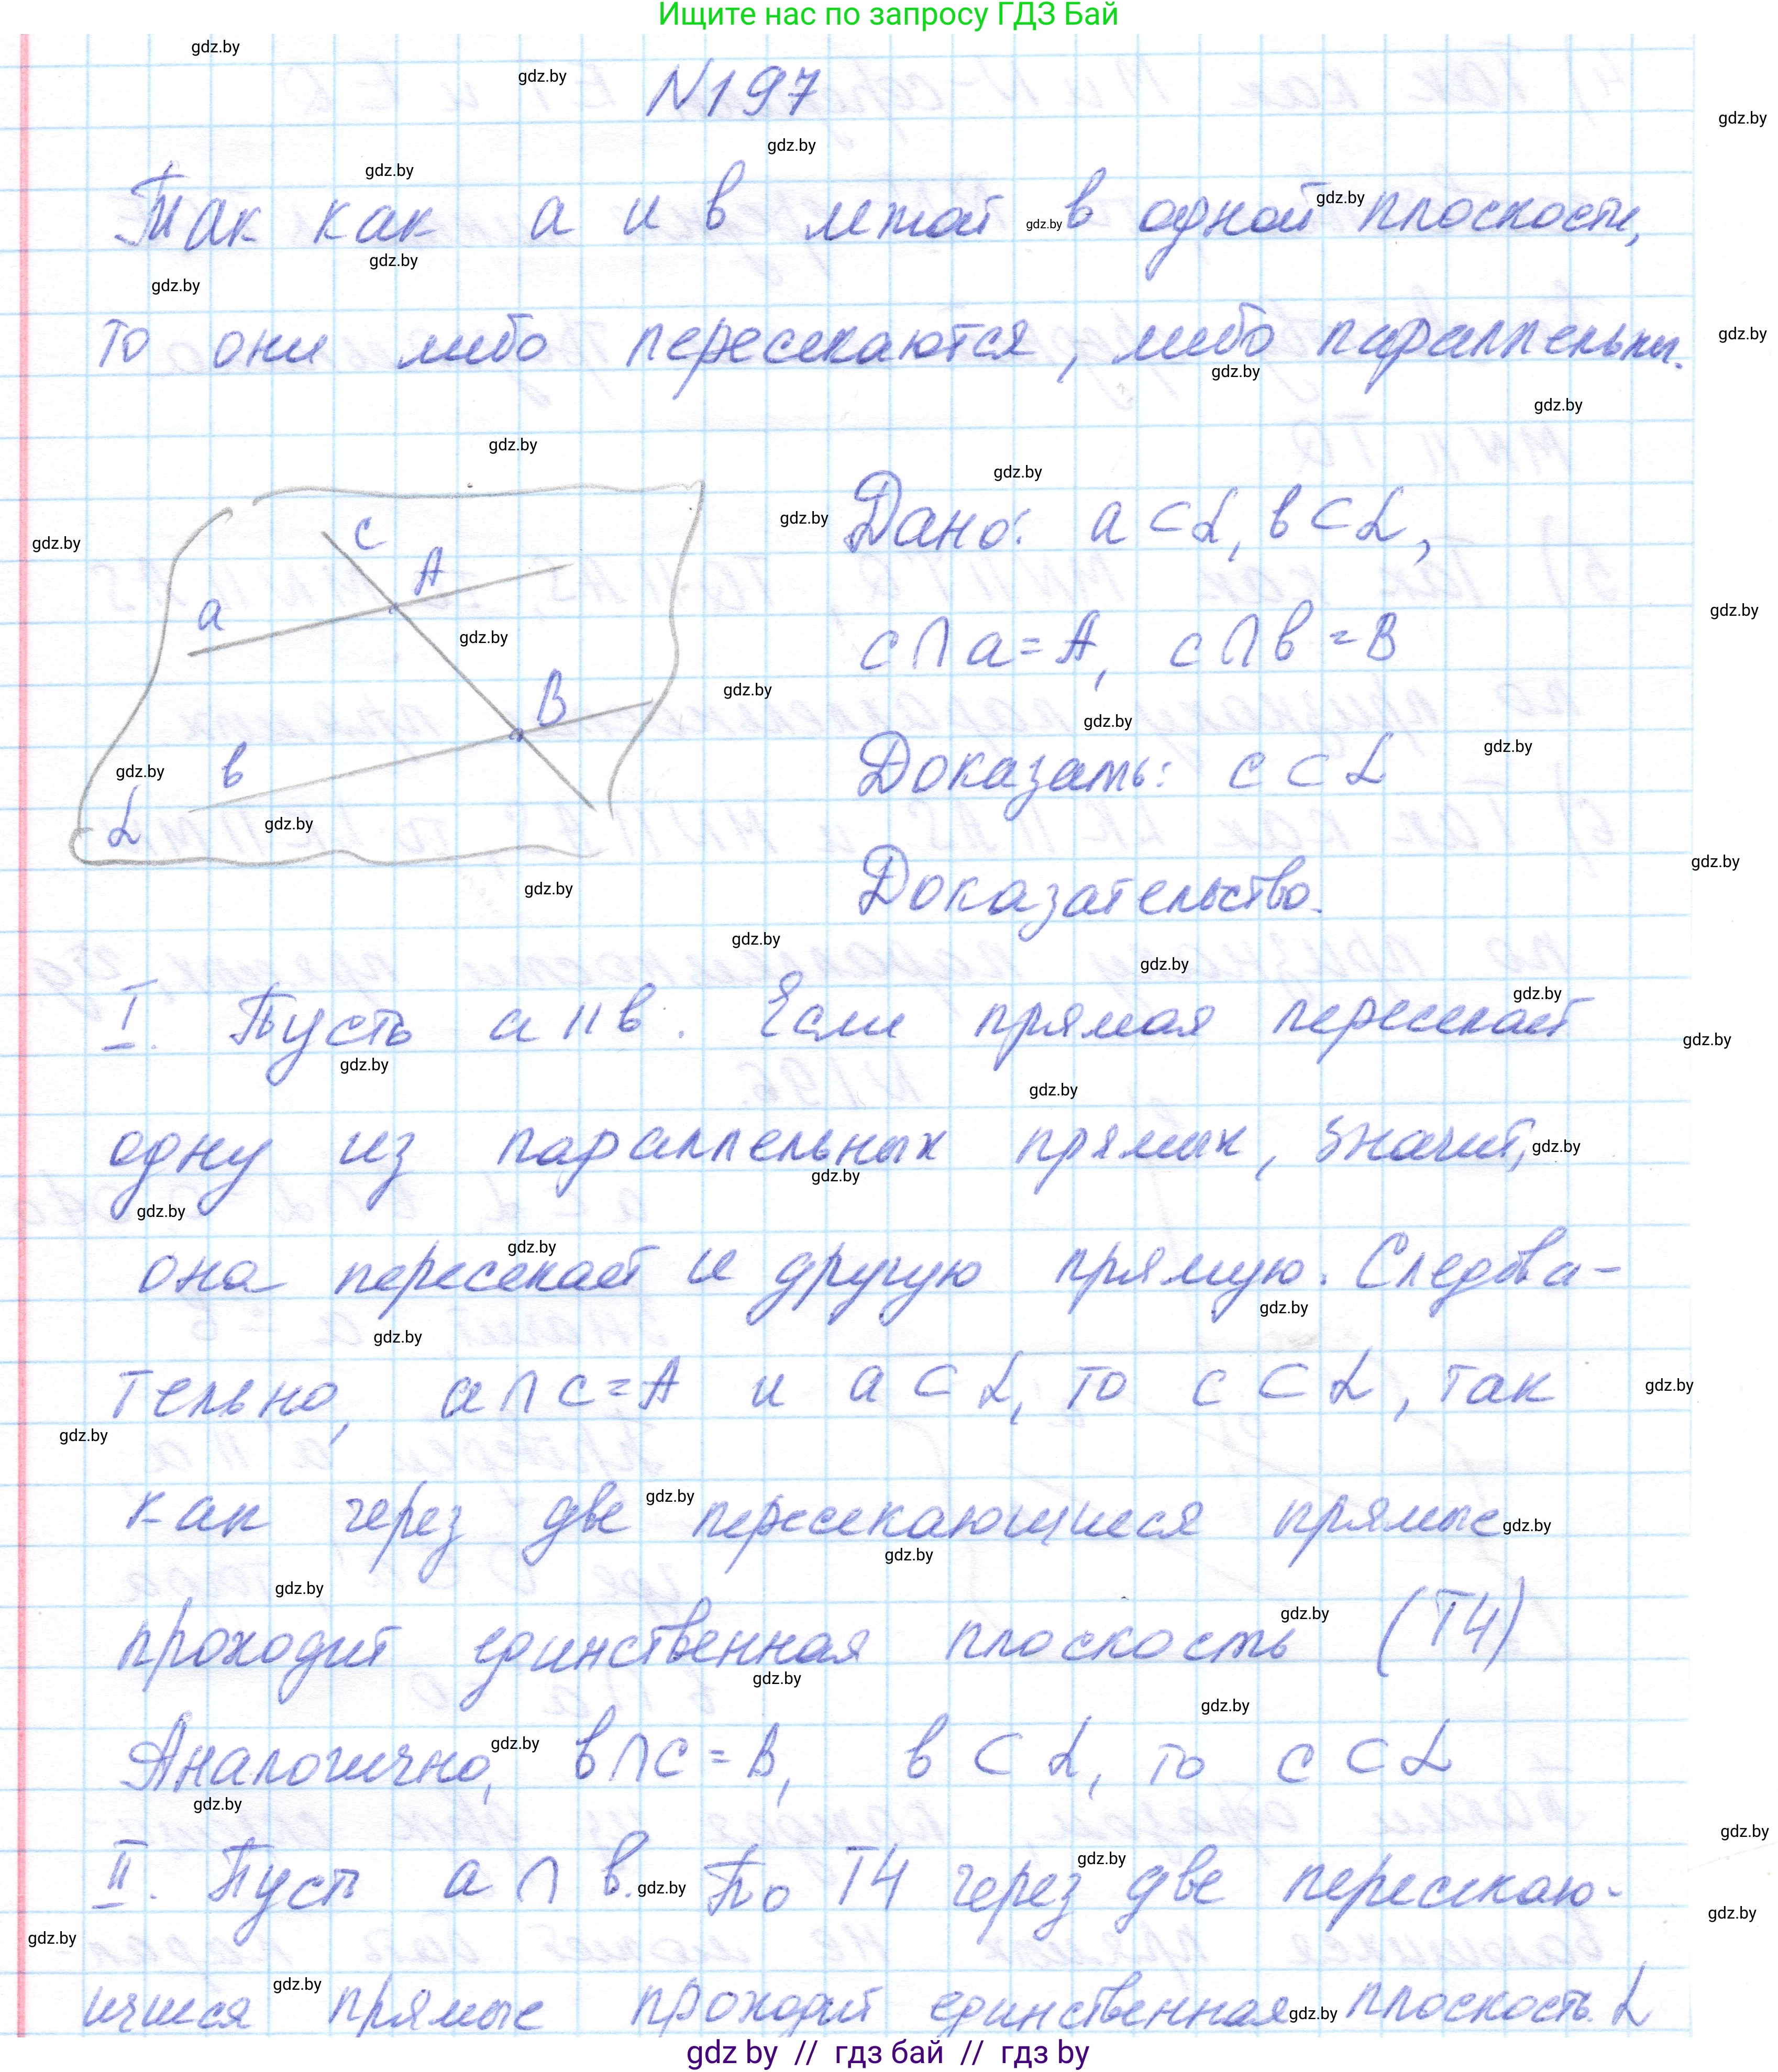 Ищите нас по запросу ГДЗ Бай
N197
Так как a и b лежат в одной плоскости,
то они либо пересекаются, либо параллельны.
c
A
a
B
b
α
Дано: a ⊂ α, b ⊂ α,
c ∩ a = A, c ∩ b = B
Доказать: c ⊂ α
Доказательство.
I. Пусть a || b. Если прямая пересекает
одну из параллельных прямых, значит,
она пересекает и другую прямую. Следова-
тельно, a ∩ c = A и a ⊂ α, то c ⊂ α, так
как через две пересекающиеся прямые
проходит единственная плоскость (Т4)
Аналогично, b ∩ c = B, b ⊂ α, то c ⊂ α
II. Пуст a ∩ b. По Т4 через две пересекаю-
щиеся прямые проходит единственная плоскость α
gdz by // гдз бай // гдз by